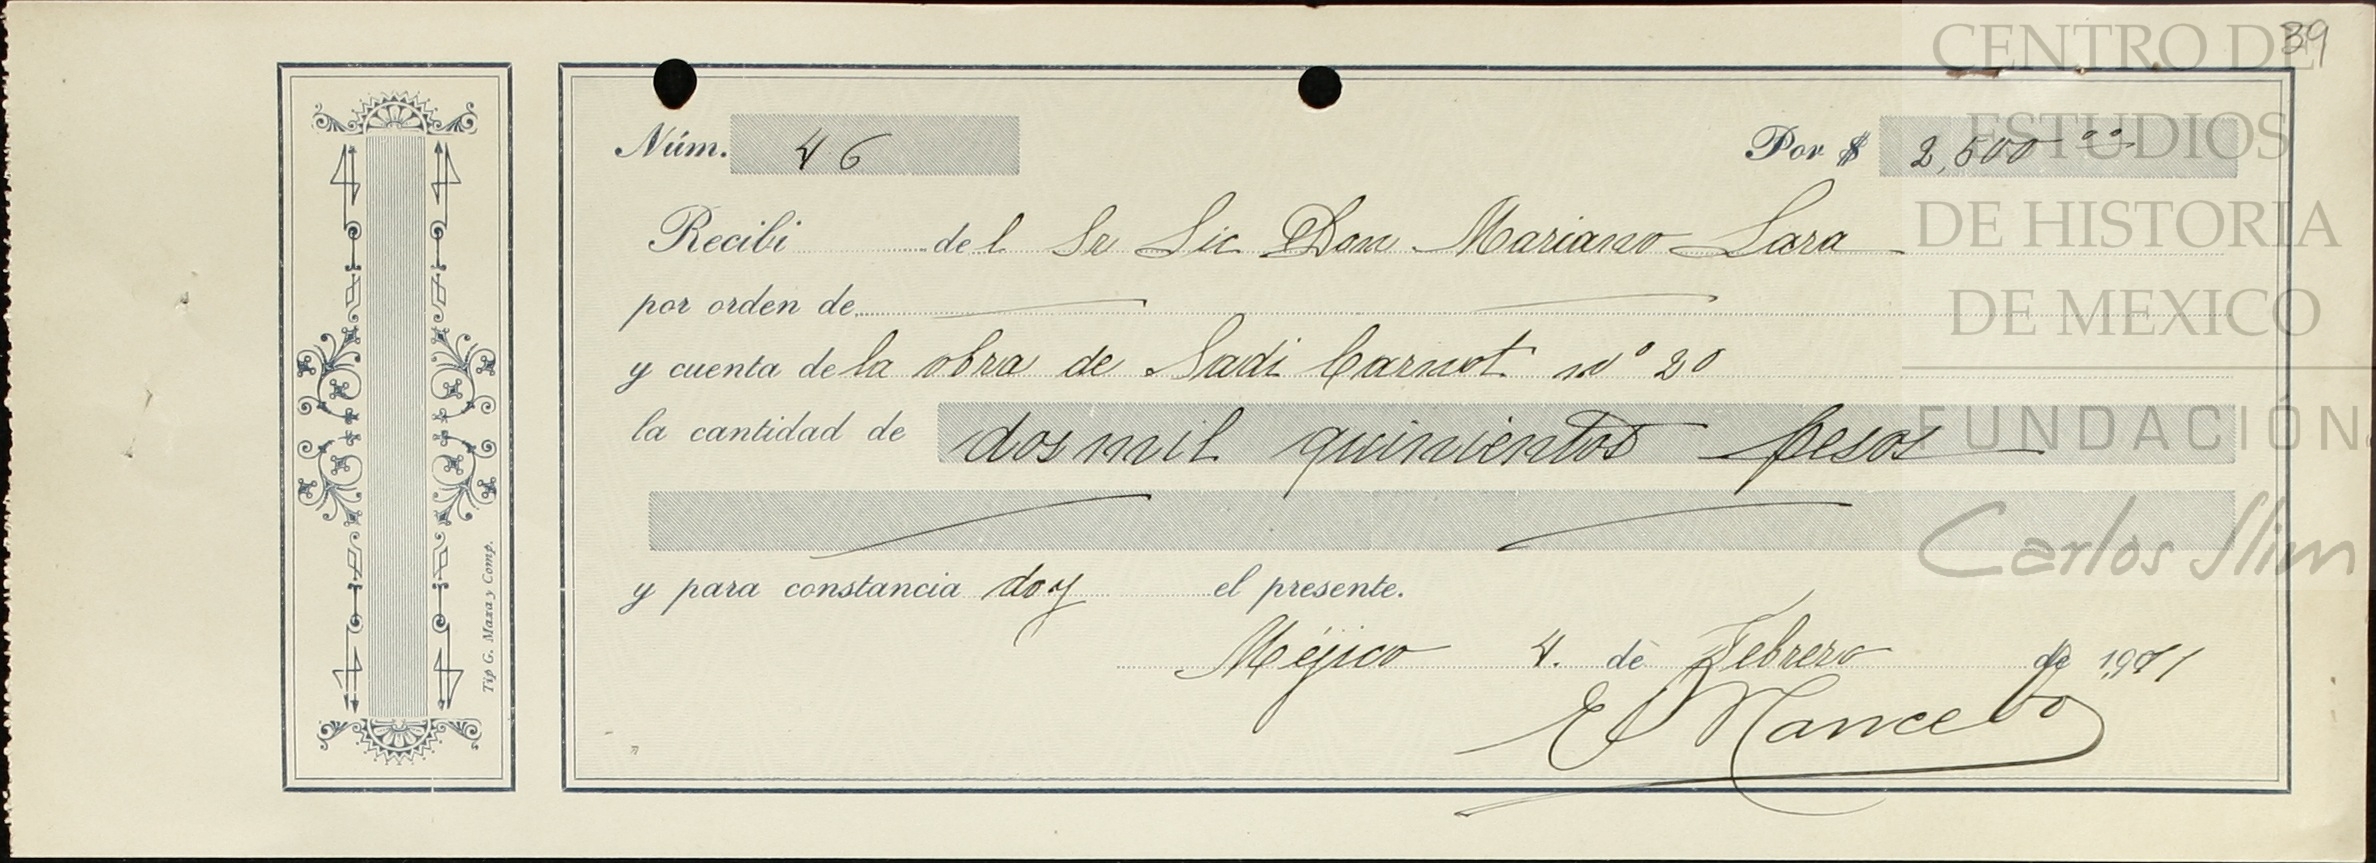 39
CENTRO DE
ESTUDIOS
DE HISTORIA
DE MEXICO
FUNDACIÓN
Carlos Slim
Núm. 46 Por $ 2,500 00
Recibi del Sr Lic Don Mariano Lara
por orden de
y cuenta de la obra de Sadi Carnot nº 20
la cantidad de dos mil quinientos pesos
y para constancia doy el presente.
Méjico 4. de Febrero de 1911
E Mancebo
Tip G. Maxa y Comp.